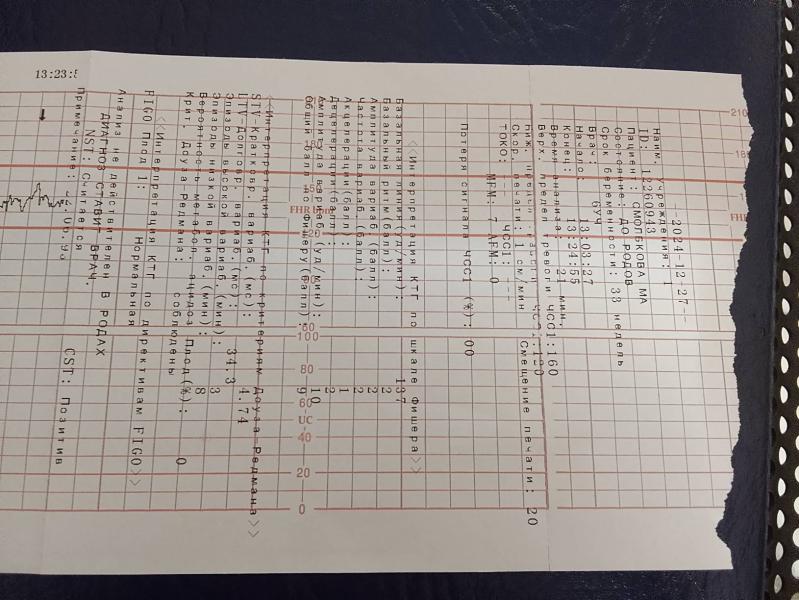 --2024-12-27--
Наим. учреждения: 1
ID: 12260943
Пациент: СМОЛЬКОВА МА
Состояние: ДО РОДОВ
Срок беременности: 33 недель
Врач: 6УЧ
Начало: 13:03:27
Конец: 13:24:55
Время анализа: 21 мин.
Верх. предел тревоги ЧСС1:160
Смещение печати: 20
Скор. печати: 1 см/мин
ЧСС1: ---
ТОКО: --- MFM: 7 AFM: 0
Потеря сигнала ЧСС1 (%): 00
<<Интерпретация КТГ по шкале Фишера>>
Базальная линия(уд/мин): 137
Базальный ритм(балл): 2
Амплитуда вариаб(балл): 2
Частота вариаб.(балл): 2
Акцелерации(балл): 1
Децелерации(балл): 2
Амплитуда вариаб(уд/мин): 10
Общий балл по Фишеру(балл): 9
<<Интерпретация КТГ по критериям Доуза-Редмана>>
STV-Кратковр. вариаб.(мс): 4.74
LTV-Долговр. вариаб.(мс): 34.3
Эпизоды высокой вариаб.(мин): 3
Эпизоды низкой вариаб.(мин): 8
Вероятность метабол. ацидоз Плод(%): 0
Крит. Доуза-Редмана: соблюдены
<<Интерпретация КТГ по директивам FIGO>>
FIGO Плод 1: Нормальная
Анализ не действителен В РОДАХ
ДИАГНОЗ СТАВИТ ВРАЧ.
NST: Считается
CST: Позитив
Примечание:
13:23:5
210
180
FHR
FHR
100
80
60
UC
40
20
0